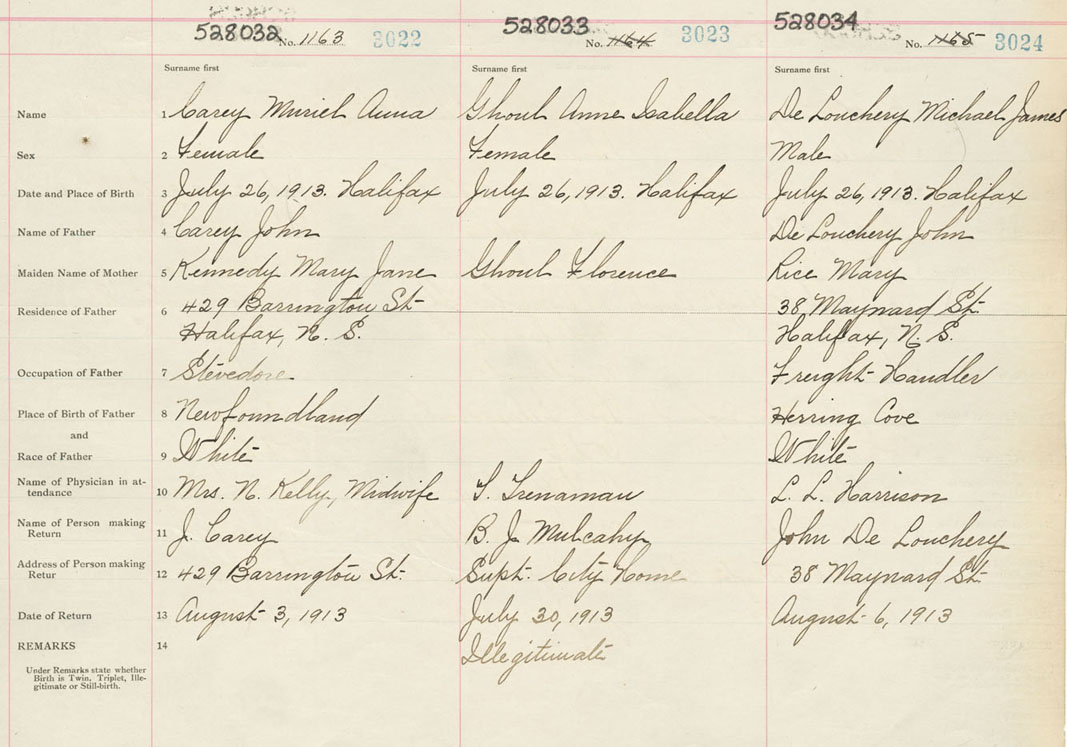 528032 No. 1163 3022 528033 No. 1164 3023 528034 No. 1165 3024
Surname first Surname first Surname first
Name 1 Carey Muriel Anna Ghoul Anne Isabella De Louchery Michael James
Sex 2 Female Female Male
Date and Place of Birth 3 July 26, 1913. Halifax July 26, 1913. Halifax July 26, 1913. Halifax
Name of Father 4 Carey John De Louchery John
Maiden Name of Mother 5 Kennedy Mary Jane Ghoul Florence Rice Mary
Residence of Father 6 429 Barrington St- 38 Maynard St.
Halifax, N. S. Halifax, N. S.
Occupation of Father 7 Stevedore Freight Handler
Place of Birth of Father 8 Newfoundland Herring Cove
and
Race of Father 9 White White
Name of Physician in at-
tendance 10 Mrs. N. Kelly, Midwife T. Trenaman L. L. Harrison
Name of Person making
Return 11 J. Carey B. J. Mulcahy John De Louchery
Address of Person making
Retur 12 429 Barrington St. Supt. City Home 38 Maynard St.
Date of Return 13 August 3, 1913 July 30, 1913 August 6, 1913
REMARKS 14 Illegitimate
Under Remarks state whether
Birth is Twin, Triplet, Ille-
gitimate or Still-birth.